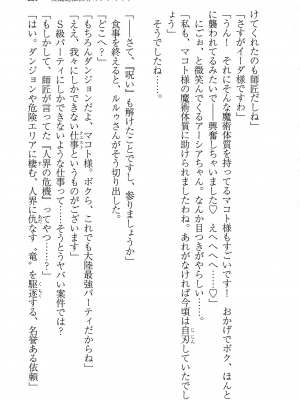 けてくれたのも師匠だしね」
「さすがイーダ様ですわ」
「うん！　それにそんな魔術体質を持ってるマコト様もすごいです！　おかげでボク、ほんと
に襲われてるみたいで――興奮しちゃいました♡　えへへへへ……♡」
にごぉ、と微笑んでくるアーシアちゃん。なんか目つきがやらしい……。
「私も、マコト様の魔術体質に助けられましたわね。あれがなければ今頃は自刃していたでし
ょう」
そうでしたね。
「――さて、〝呪い〟も解けたことですし、参りましょうか」
食事を終えると、ルルゥさんがそう切り出した。
「どこへ？」
「もちろんダンジョンだよ、マコト様。ボクら、これでも大陸最強パーティだからね」
「ええ、我々にしかできない仕事というものがございます」
Ｓ級パーティにしかできないような仕事って……そうとうヤバい案件では？
「もしかして、師匠が言ってた『人界の危機』ってやつ？」
「はい。ダンジョンや危険エリアに棲む、人界に仇なす〝竜〟を駆逐する、名誉ある依頼」